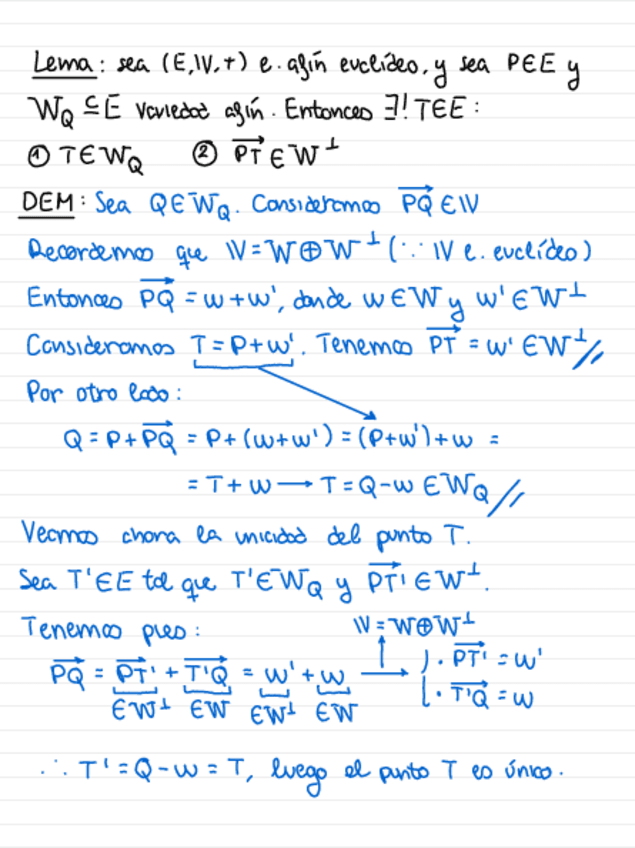 Lema: sea (E,𝕍,+) e. afín euclídeo, y sea P∈E y
W_Q ⊆ E variedad afín. Entonces ∃! T∈E :
① T∈W_Q ② PT⃗ ∈ W^⊥
DEM: Sea Q∈W_Q. Consideramos PQ⃗ ∈ 𝕍
Recordemos que 𝕍 = W⊕W^⊥ (∵ 𝕍 e. euclídeo)
Entonces PQ⃗ = w + w', donde w∈W y w'∈W^⊥
Consideramos T = P+w'. Tenemos PT⃗ = w' ∈ W^⊥ //
Por otro lado:
Q = P + PQ⃗ = P + (w+w') = (P+w') + w =
= T + w → T = Q-w ∈ W_Q //
Veamos ahora la unicidad del punto T.
Sea T'∈E tal que T'∈W_Q y PT'⃗ ∈ W^⊥.
Tenemos pues: 𝕍 = W⊕W^⊥
PQ⃗ = PT'⃗ + T'Q⃗ = w' + w → { · PT'⃗ = w'
∈W^⊥ ∈W ∈W^⊥ ∈W · T'Q⃗ = w
∴ T' = Q-w = T, luego el punto T es único.